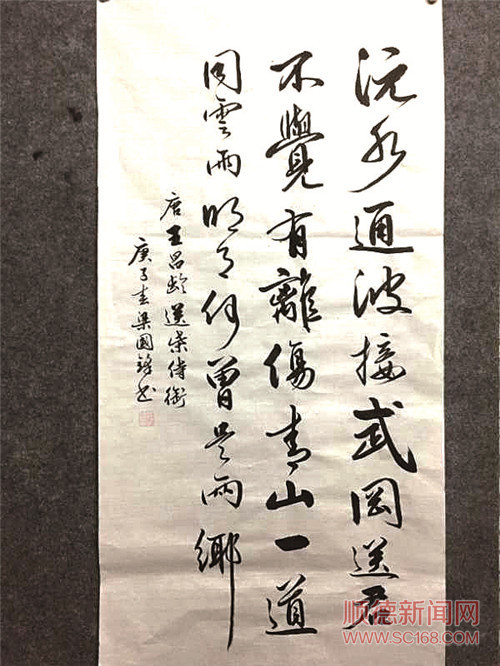 沅水通波接武岡送君
不覺有離傷青山一道
同雲雨明月何曾是兩鄉
唐王昌齡送柴侍御
庚子春梁國鋒書
顺德新闻网
www.SC168.com